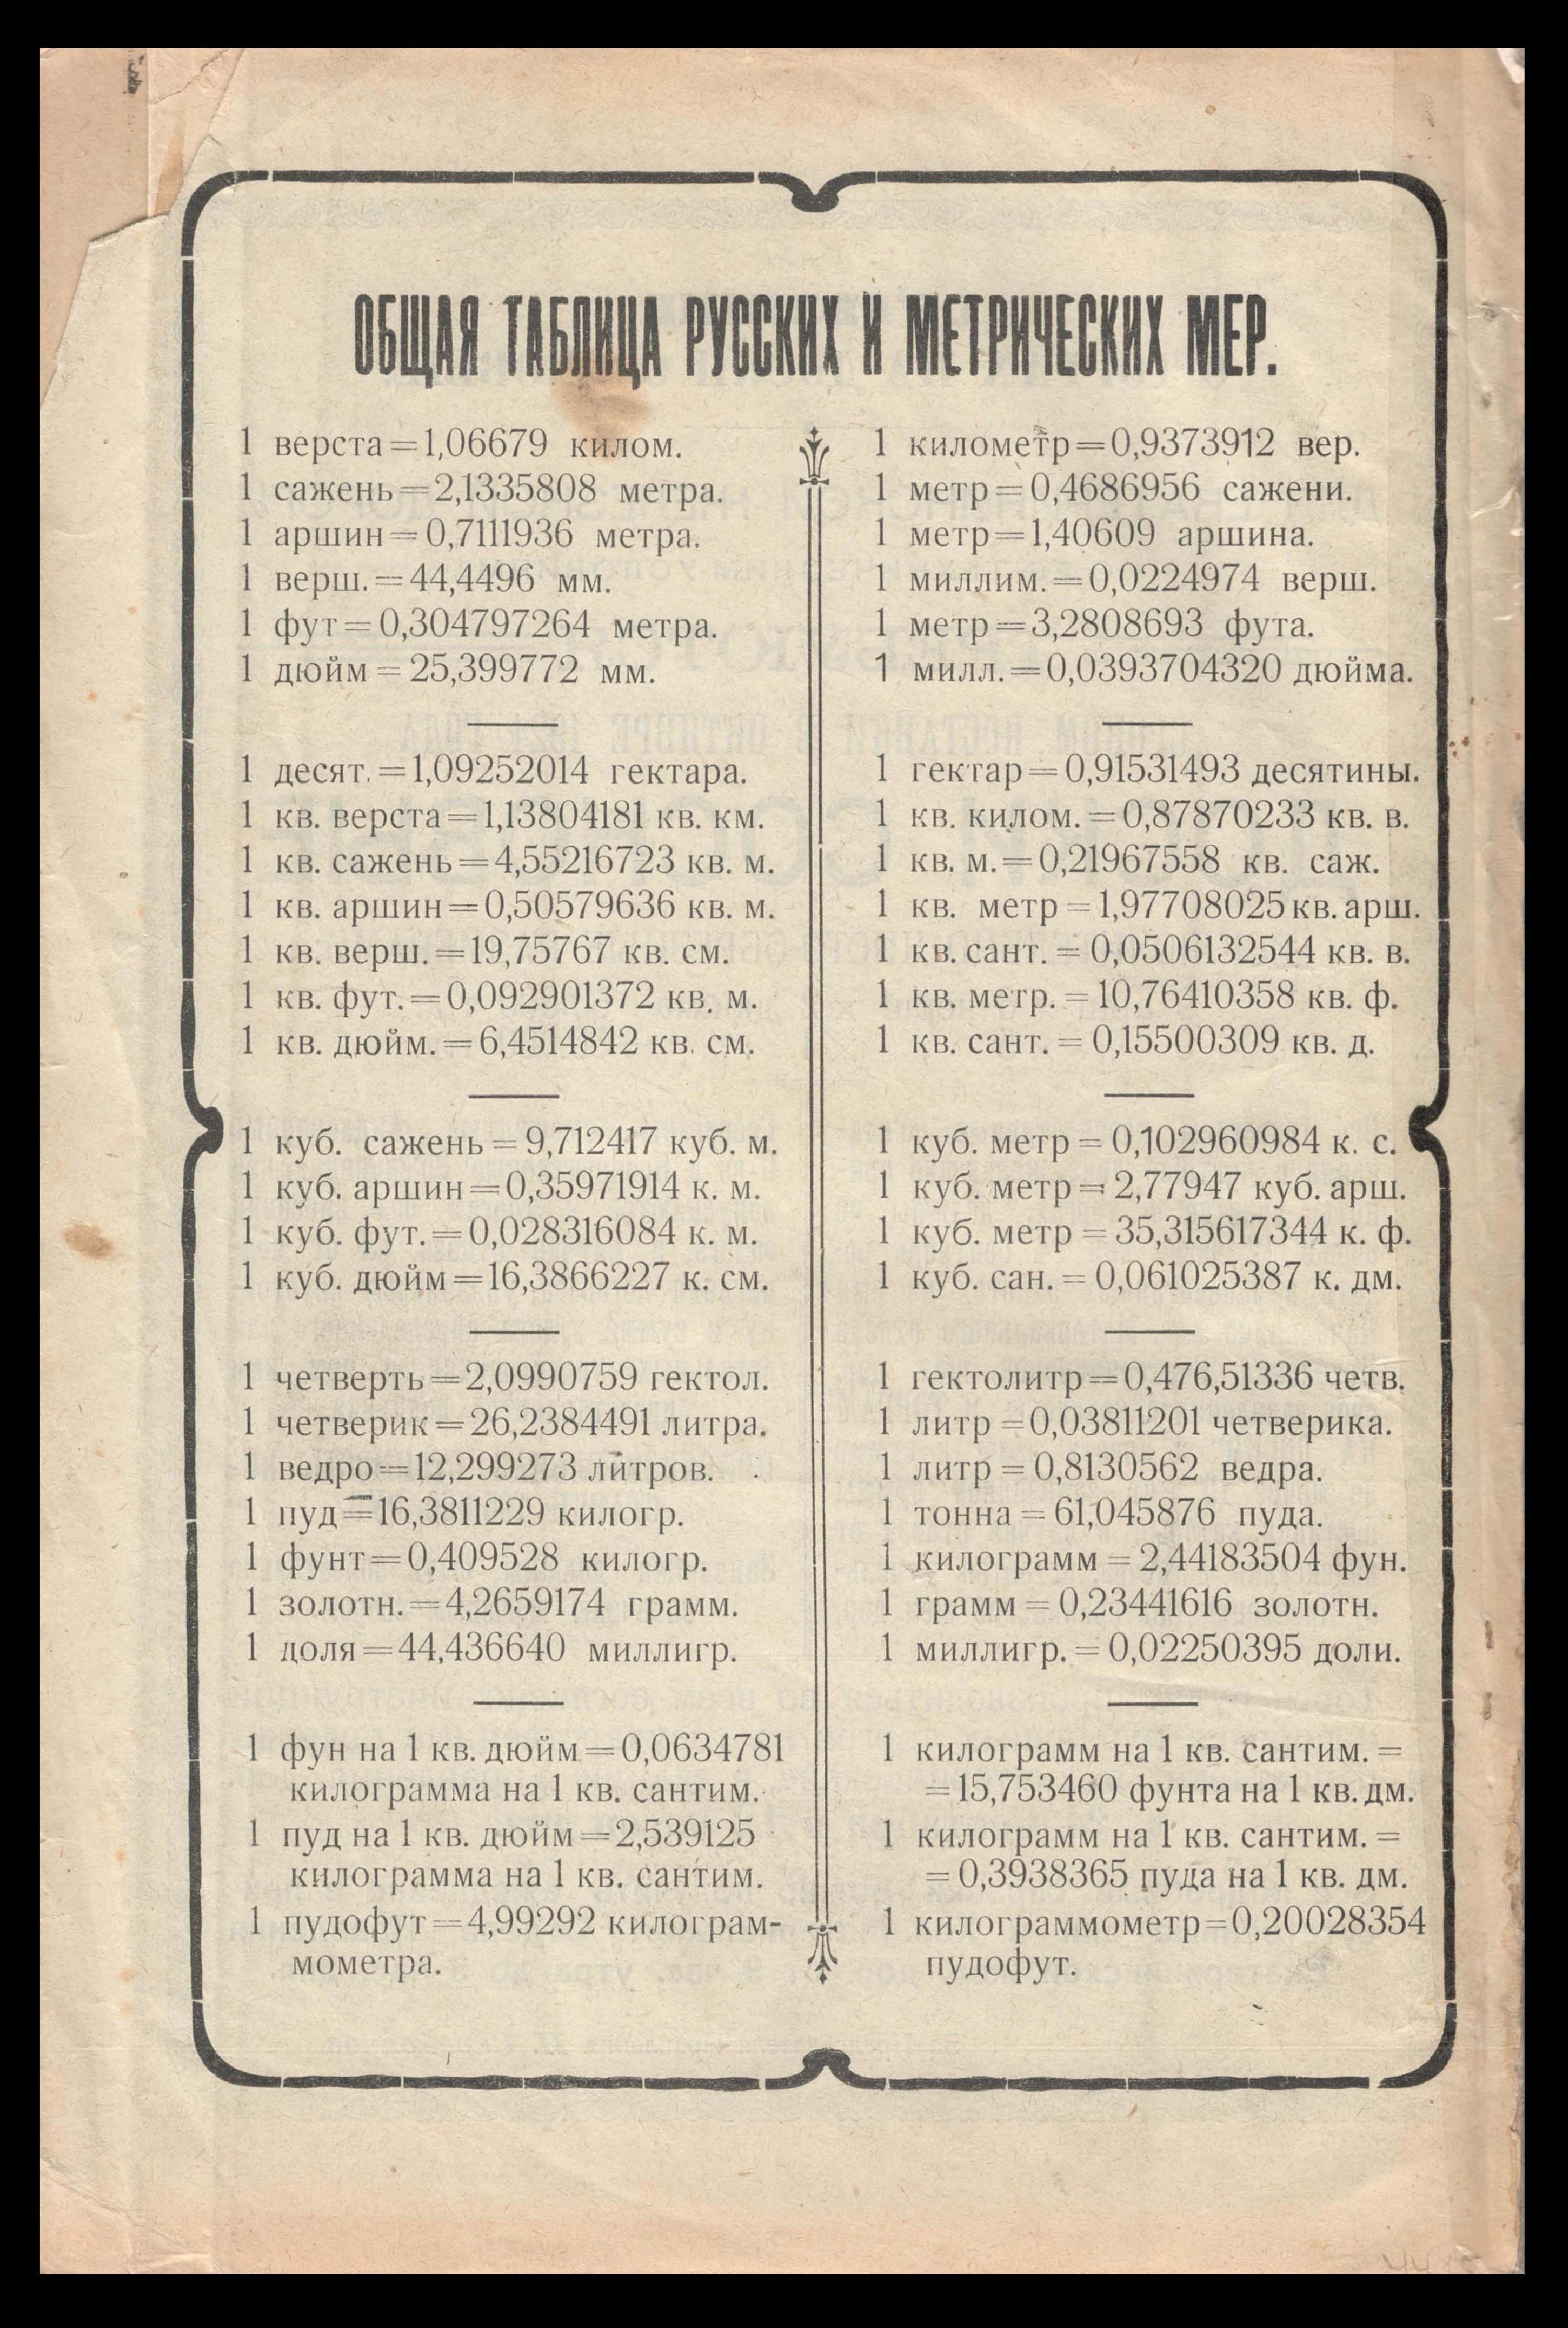 ОБЩАЯ ТАБЛИЦА РУССКИХ И МЕТРИЧЕСКИХ МЕР.
1 верста=1,06679 килом.
1 сажень=2,1335808 метра.
1 аршин=0,7111936 метра.
1 верш.=44,4496 мм.
1 фут=0,304797264 метра.
1 дюйм=25,399772 мм.
1 десят.=1,09252014 гектара.
1 кв. верста=1,13804181 кв. км.
1 кв. сажень=4,55216723 кв. м.
1 кв. аршин=0,50579636 кв. м.
1 кв. верш.=19,75767 кв. см.
1 кв. фут.=0,092901372 кв. м.
1 кв. дюйм.=6,4514842 кв. см.
1 куб. сажень=9,712417 куб. м.
1 куб. аршин=0,35971914 к. м.
1 куб. фут.=0,028316084 к. м.
1 куб. дюйм=16,3866227 к. см.
1 четверть=2,0990759 гектол.
1 четверик=26,2384491 литра.
1 ведро=12,299273 литров.
1 пуд=16,3811229 килогр.
1 фунт=0,409528 килогр.
1 золотн.=4,2659174 грамм.
1 доля=44,436640 миллигр.
1 фун на 1 кв. дюйм=0,0634781
килограмма на 1 кв. сантим.
1 пуд на 1 кв. дюйм=2,539125
килограмма на 1 кв. сантим.
1 пудофут=4,99292 килограм-
мометра.
1 километр=0,9373912 вер.
1 метр=0,4686956 сажени.
1 метр=1,40609 аршина.
1 миллим.=0,0224974 верш.
1 метр=3,2808693 фута.
1 милл.=0,0393704320 дюйма.
1 гектар=0,91531493 десятины.
1 кв. килом.=0,87870233 кв. в.
1 кв. м.=0,21967558 кв. саж.
1 кв. метр=1,97708025 кв. арш.
1 кв. сант.=0,0506132544 кв. в.
1 кв. метр.=10,76410358 кв. ф.
1 кв. сант.=0,15500309 кв. д.
1 куб. метр=0,102960984 к. с.
1 куб. метр=2,77947 куб. арш.
1 куб. метр=35,315617344 к. ф.
1 куб. сан.=0,061025387 к. дм.
1 гектолитр=0,476,51336 четв.
1 литр=0,03811201 четверика.
1 литр=0,8130562 ведра.
1 тонна=61,045876 пуда.
1 килограмм=2,44183504 фун.
1 грамм=0,23441616 золотн.
1 миллигр.=0,02250395 доли.
1 килограмм на 1 кв. сантим.=
=15,753460 фунта на 1 кв. дм.
1 килограмм на 1 кв. сантим.=
=0,3938365 пуда на 1 кв. дм.
1 килограммометр=0,20028354
пудофут.